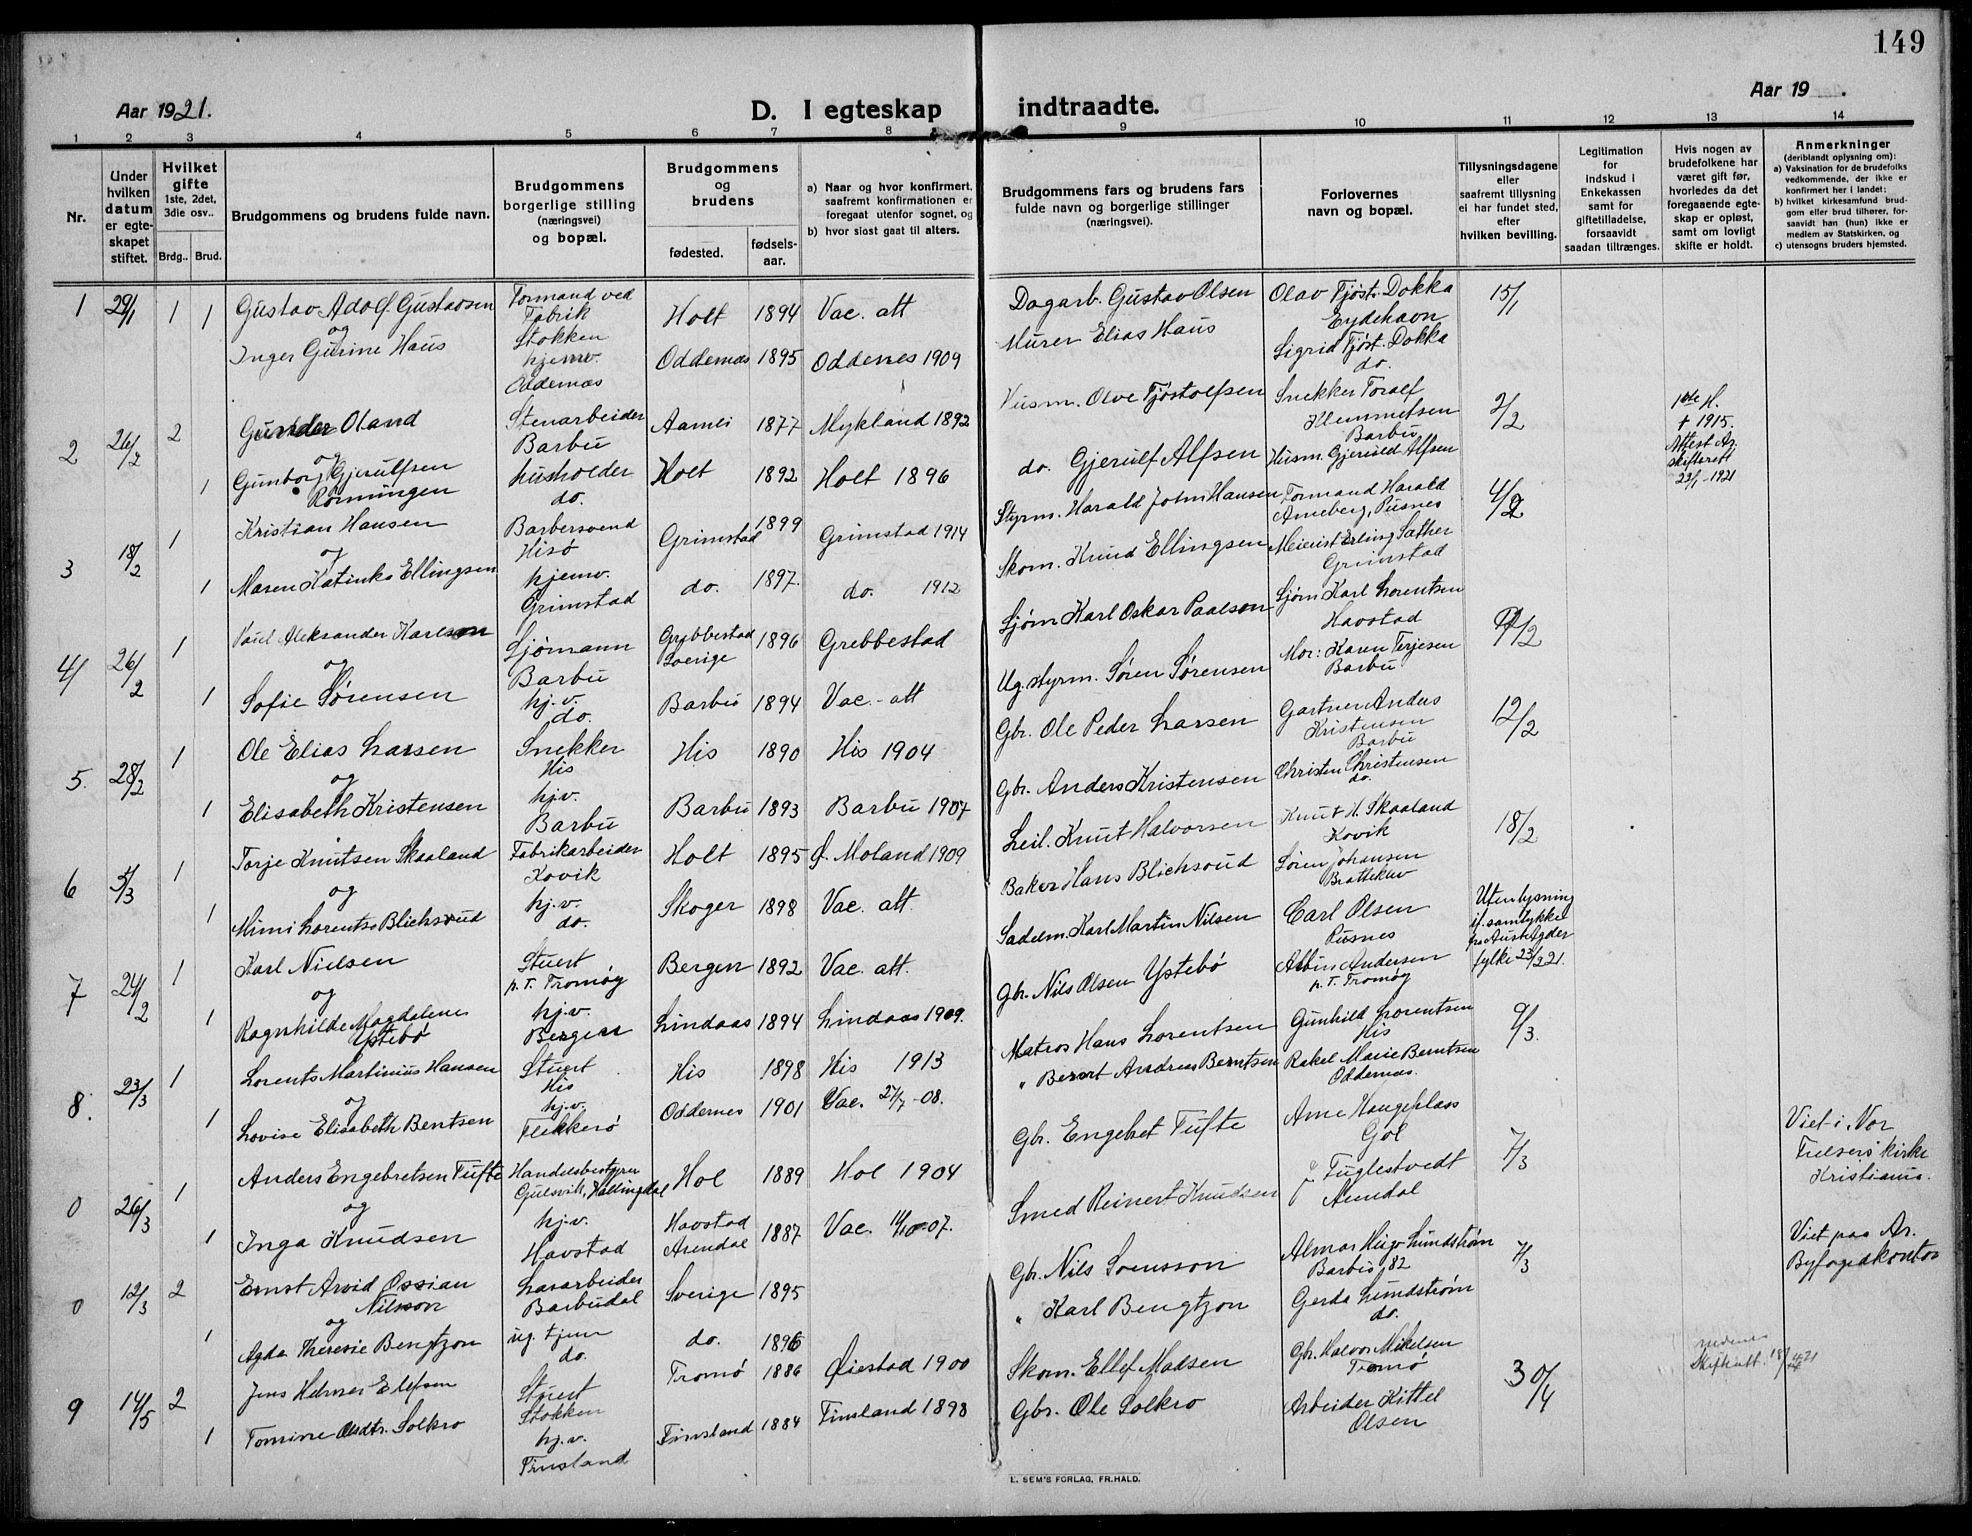 149
Aar 1921.
D. I egteskap indtraadte.
Aar 19 .
1 2 3 4 5 6 7 8 9 10 11 12 13 14
Nr.
Under hvilken datum er egte-skapet stiftet.
Hvilket gifte 1ste, 2det, 3die osv..
Brdg.. Brud.
Brudgommens og brudens fulde navn.
Brudgommens borgerlige stilling (næringsvei) og bopæl.
Brudgommens og brudens
fødested.
fødsels-aar.
a) Naar og hvor konfirmert, saafremt konfirmationen er foregaat utenfor sognet, og
b) hvor sidst gaat til alters.
Brudgommens fars og brudens fars fulde navn og borgerlige stillinger (næringsvei).
Forlovernes navn og bopæl.
Tillysningsdagene eller saafremt tillysning ei har fundet sted, efter hvilken bevilling.
Legitimation for indskud i Enkekassen samt for giftetilladelse, forsaavidt saadan tiltrænges.
Hvis nogen av brudefolkene har været gift før, hvorledes da det foregaaende egte-skap er opløst, samt om lovligt skifte er holdt.
Anmerkninger (deriblandt oplysning om):
a) Vaksination for de brudefolks vedkommende, der ikke er konfirmert her i landet;
b) hvilket kirkesamfund brud-gom eller brud tilhører, for-saavidt han (hun) ikke er medlem av Statskirken, og
c) utensogns bruders hjemsted.
1 29/1 1 Gustav Adolf Gustavsen Formand ved Fabrik Stokken Holt 1894 Vac. att Dagarb. Gustav Olsen Olav Tjøst. Dokka Eydehavn 15/1
og
1 Inger Gurine Haus hjemv. Oddernæs Oddernæs 1895 Oddernes 1909 Murer Elias Haus Sigrid Tjøst. Dokka do.
2 26/2 2 Gunder Oland Stenarbeider Barbu Aamli 1877 Mykland 1892 Husm. Olve Tjøstolfsen Snekker Toralf Klemmetsen Barbu 2/2 1ste H. † 1915. Attest Ar. skifteret 22/1-1921
og
1 Gunborg Gjerulfsen Rønningen husholder do. Holt 1892 Holt 1896 do. Gjerulf Alfsen Husm. Gjeruld Alfsen
3 18/2 1 Kristian Hansen Barbersvend Hisø Grimstad 1899 Grimstad 1914 Styrm. Harald John Hansen Formand Harald Arneberg, Pusnes 4/2
og
1 Maren Katinka Ellingsen hjemv. Grimstad do. 1897 do. 1912 Skom. Knud Ellingsen Meierist Erling Sæther Grimstad
4 26/2 1 Paul Aleksander Karlson Sjømann Barbu Grebbestad Sverige 1896 Grebbestad Sjøm Karl Oskar Paalson Sjøm Karl Lorentsen Havstad 9/2
og
1 Sofie Sørensen hj.v. do. Barbu 1894 Vac. - att Ug. styrm. Søren Sørensen Mor: Karen Terjesen Barbu
5. 28/2 1 Ole Elias Larsen Snekker His His 1890 His 1904 Gbr. Ole Peder Larsen Gartner Anders Kristensen Barbu 12/2
og
1 Elisabeth Kristensen hj.v. Barbu Barbu 1893 Barbu 1907 Gbr. Anders Kristensen Christen Christensen do.
6 5/3 1 Torje Knutsen Skaaland Fabrikarbeider Kovik Holt 1895 Ø. Moland 1909 Leil. Knut Halvorsen Knut H. Skaaland Kovik 18/2
og
1 Mimi Lorentse Blichsrud hj.v. do. Skoger 1898 Vac. att Baker Hans Blichsrud Søren Johansen Brattekleiv
7 24/2 1 Karl Nielsen Stuert p. T. Tromøy Bergen 1892 Vac. att. Sadelm. Karl Martin Nilsen Carl Olsen Pusnes Uten lysning if. samtykke fra Aust-Agder fylke 23/2 21.
og
1 Ragnhilde Magdalene Ystebø hj.v. Bergen Lindaas 1894 Lindaas 1909. Gbr. Nils Olsen Ystebø Albin Andersen p. T. Tromøy
8. 23/3 1 Lorents Martinius Hansen Stuert His His 1898 His 1913 Matros Hans Lorentsen Gunhild Lorentsen His 9/3.
og
1 Lovise Elisabeth Berntsen hj.v. Flekkerø Oddernes 1901 Vac. 27/7-08. " Bernt Andreas Berntsen Rakel Marie Berntsen Oddernæs.
0 26/3 1 Anders Engebretsen Tufte Handelsbestyrer Gulsvik, Hallingdal Hol 1889 Hol 1904 Gbr. Engebret Tufte Arne Haugeplass Gol 7/3 Viet i Vor Frelsers kirke Kristiania.
og
1 Inga Knudsen hj.v. Havstad Havstad Arendal 1887 Vac. 1907. Smed Reinert Knudsen Fuglestvedt Arendal
0 12/3 2 Ernst Arvid Ossian Nilsson Lasarbeider Barbudal Sverige 1895 Gbr. Nils Svensson Almar Hugo Lundstrøm Barbu 82 7/3 Viet paa Ar. Byfogedkontor
og
1 Agda Theresie Bengtzon ug. tjene do. do. 1896 " Karl Bengtzon Gerda Lundstrøm do.
9 14/5 2 Jens Helmer Elefsen Stuert Stokken Tromø 1886 Øiestad 1900 Skom. Ellef Madsen Gbr. Halvor Mikelsen Tromø 30/4 Skifteatt. 18/4 21
1 Tomine Olsdtr. Solkro hj.v. Finsland Finsland 1884 Finsland 1898 Gbr. Ole Solkro Arbeider Kittel Olsen
E. SEM'S FORLAG, FR.HALD.